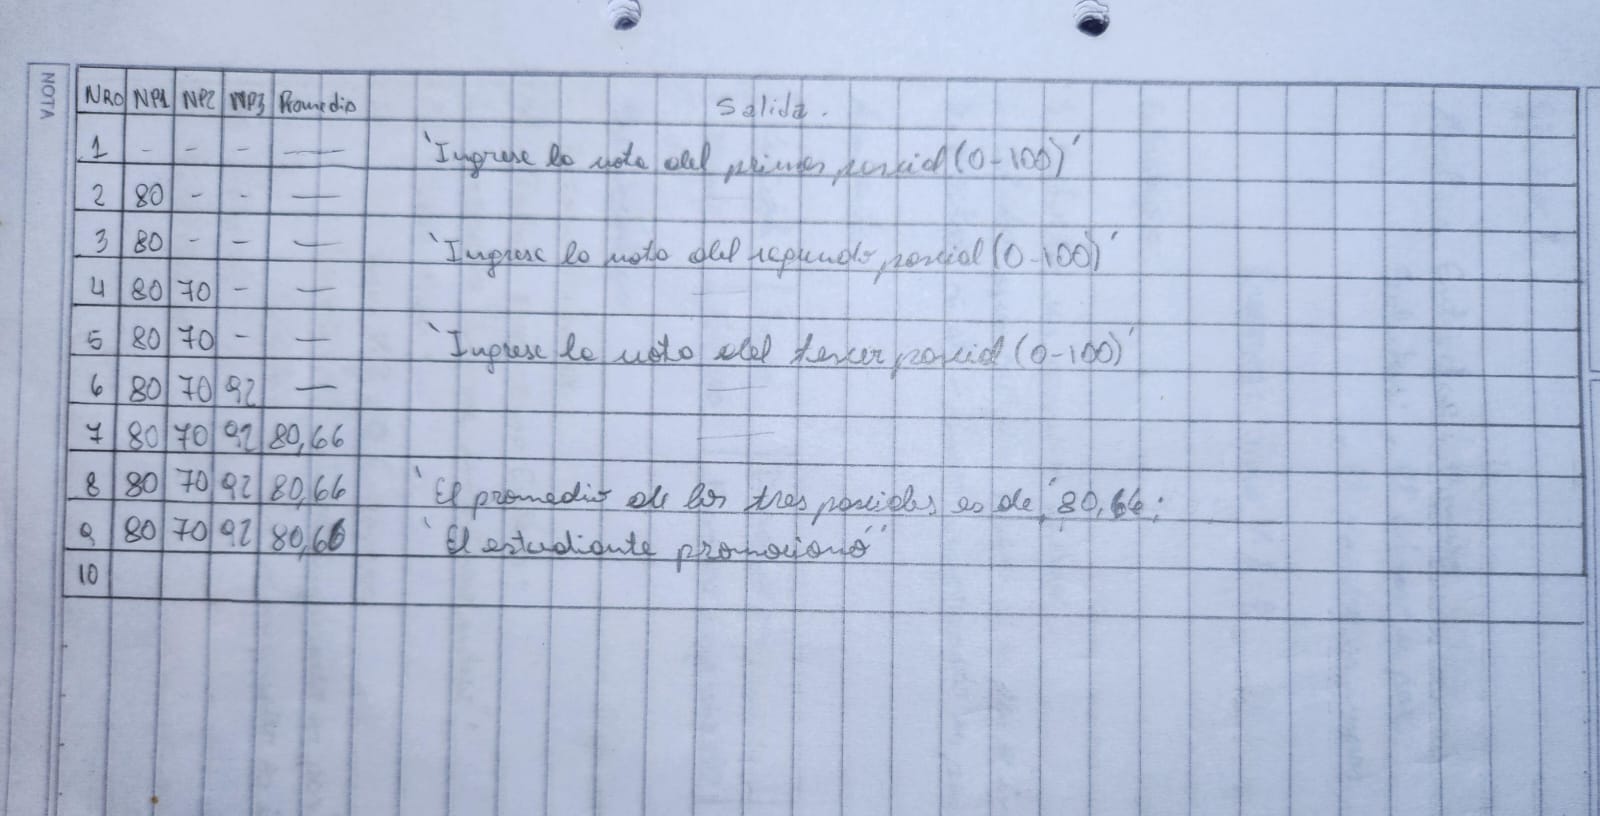 NOTA
NRO NP1 NP2 NP3 Promedio Salida.
1 - - - — 'Ingrese la nota del primer parcial (0-100)'
2 80 - - —
3 80 - - — 'Ingrese la nota del segundo parcial (0-100)'
4 80 70 - — —
5 80 70 - — 'Ingrese la nota del tercer parcial (0-100)'
6 80 70 92 — —
7 80 70 92 80,66 —
8 80 70 92 80,66 'El promedio de los tres parciales es de', 80,66;
9 80 70 92 80,66 'El estudiante promociono''
10